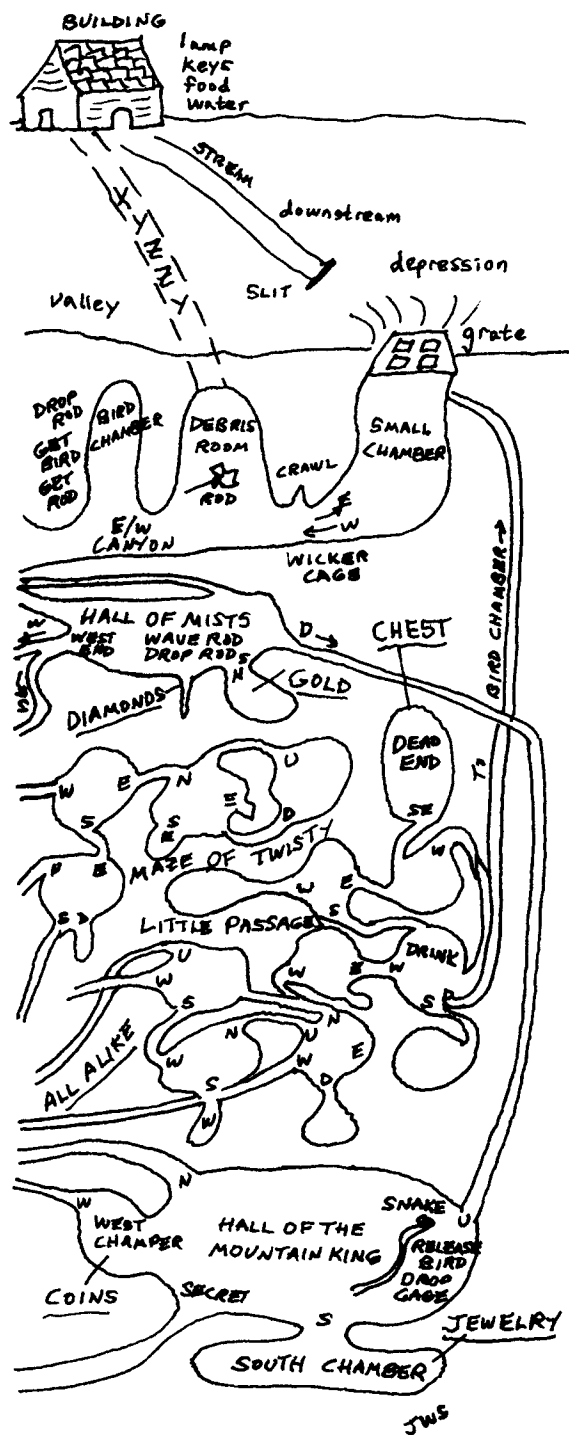 BUILDING
lamp
keys
food
water
STREAM
downstream
SLIT
XYZZY
depression
valley
grate
DROP
ROD
GET
BIRD
GET
ROD
BIRD
CHAMBER
DEBRIS
ROOM
ROD
CRAWL
SMALL
CHAMBER
E
W
E/W
CANYON
WICKER
CAGE
BIRD CHAMBER
TO
HALL OF MISTS
W
WEST
END
WAVE ROD
DROP ROD
S
N
D
CHEST
GOLD
DIAMONDS
DEAD
END
SE
W
E
N
U
W
S
S
E
E
D
MAZE OF TWISTY
E
S
D
W
E
S
W
LITTLE PASSAGES
DRINK
U
W
W
E
W
S
S
N
N
U
W
W
E
D
S
W
ALL ALIKE
N
W
WEST
CHAMPER
HALL OF THE
MOUNTAIN KING
SNAKE
U
RELEASE
BIRD
DROP
CAGE
COINS
SECRET
S
JEWELRY
SOUTH CHAMBER
JWS